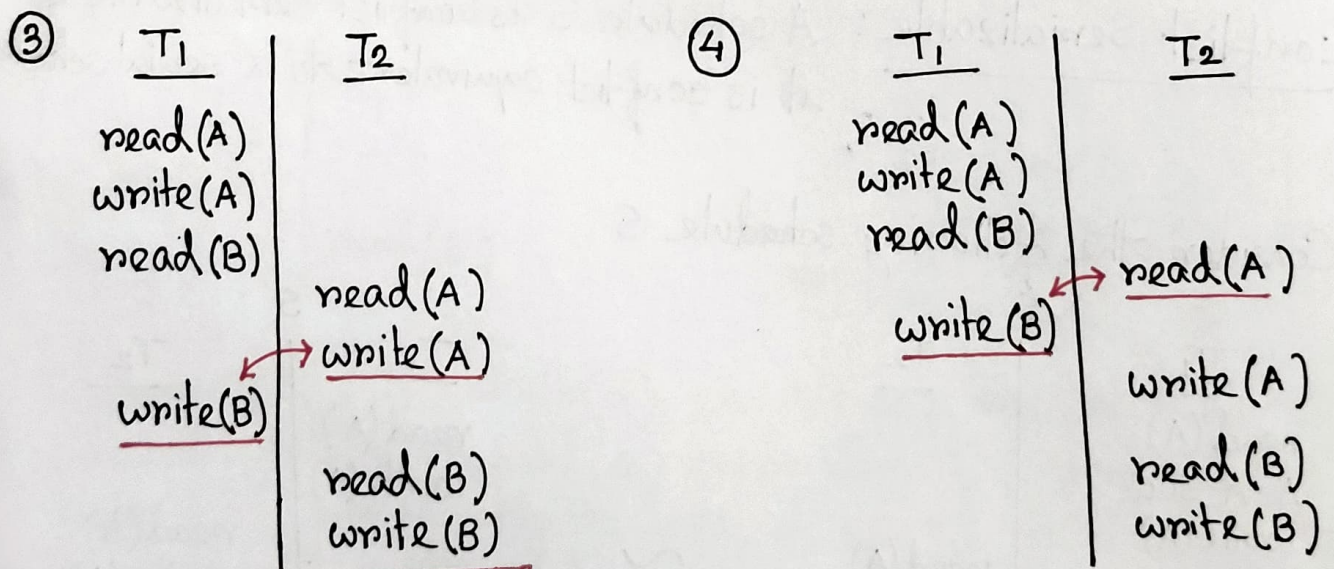 ③ T1 T2
read(A)
write(A)
read(B)
read(A)
write(A)
write(B)
read(B)
write(B)
④ T1 T2
read(A)
write(A)
read(B)
read(A)
write(B)
write(A)
read(B)
write(B)